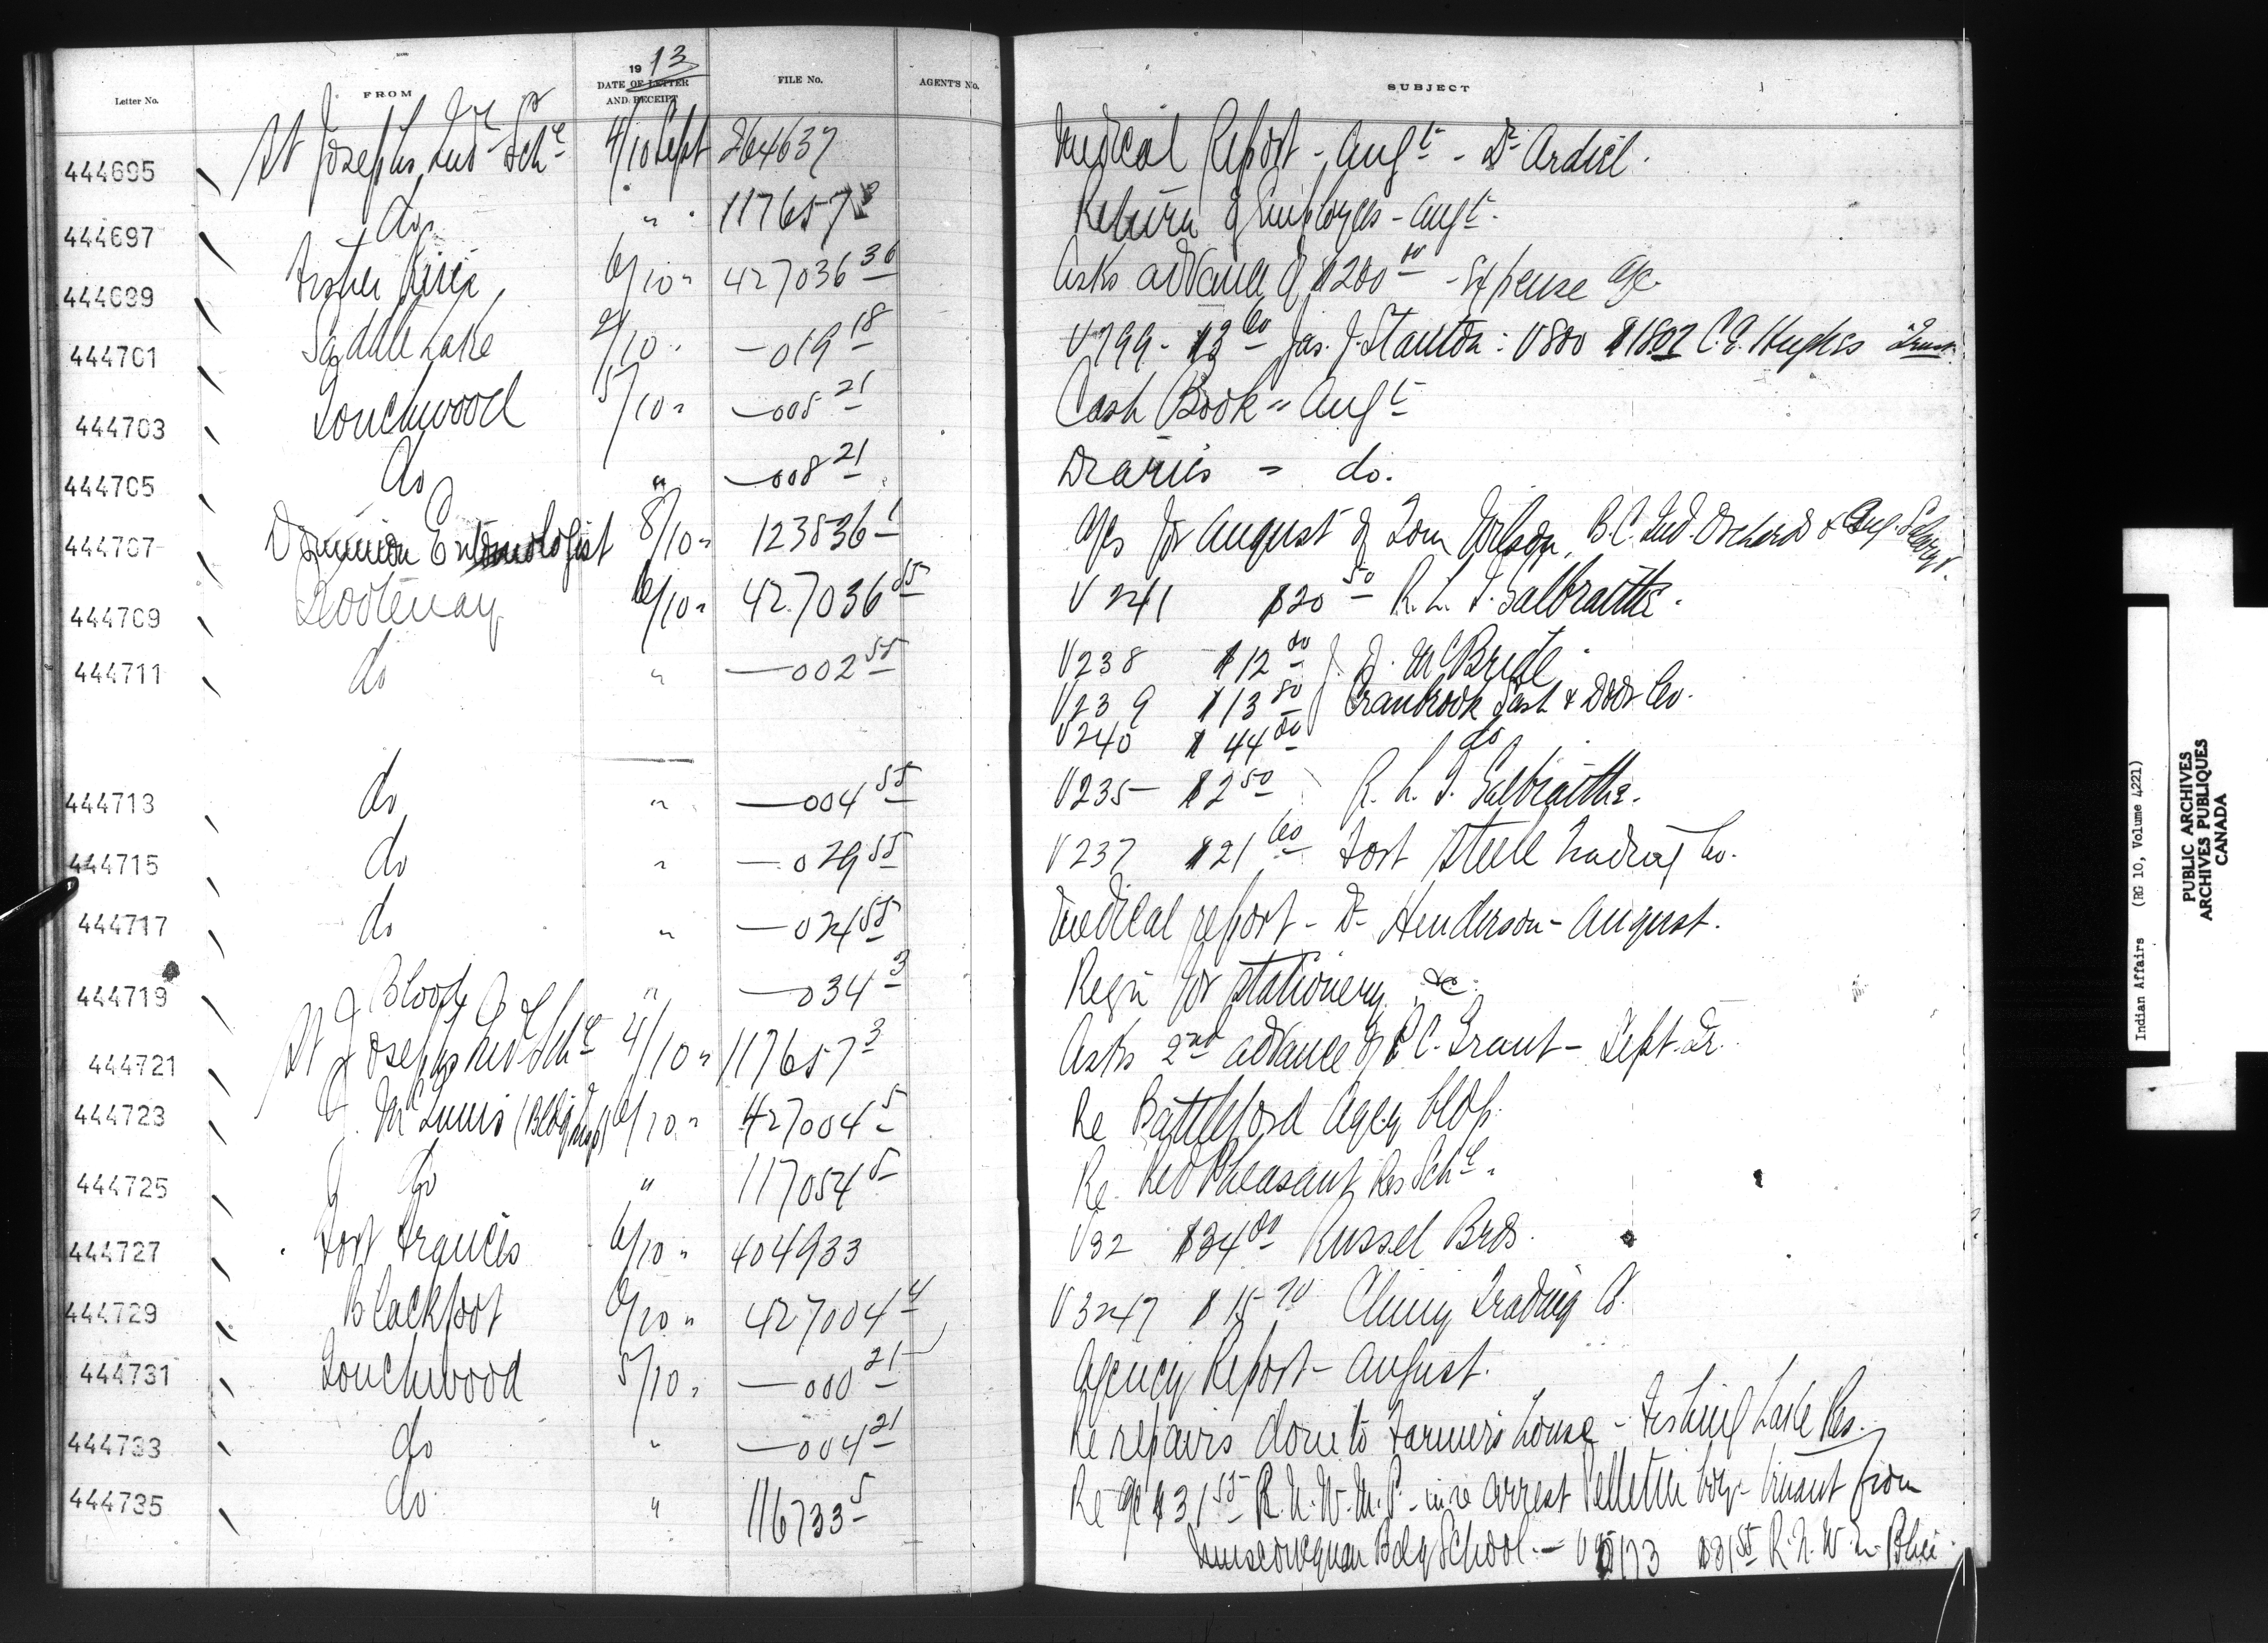 Letter No. FROM 1913 DATE OF LETTER AND RECEIPT FILE No. AGENT'S No. SUBJECT
444695 St Josephs Ind Schl 4/10 Sept 264637 Medical Report - Augt - Dr Ardiel.
444697 do " 117657 3 Return of Employes - Augt.
444699 Fisher River 6/10 " 427036 36 Asks advance of $200 00 - Expense a/c
444701 Saddle Lake 2/10 " —019 18 V799 - $3 60 Jas. J. Stanton: V800 $1807 C.E. Hughes
444703 Touchwood 5/10 " —005 21 Cash Book = Augt
444705 do " —008 21 Diaries = do.
444707 Dominion Entomologist 8/10 " 123836-1 a/cs for August of Tom Wilson, B.C. Ind. Orchards &
444709 Kootenay 6/10 " 427036 55 V241 $20 50 R. L. T. Galbraith.
444711 do " —002 55 V238 $12 00 J. D. McBride
V239 $13 80 Cranbrook Sash & Door Co.
V240 $44 00 do
444713 do " —004 55 V235 $2 50 R. L. T. Galbraith.
444715 do " —029 55 V237 $21 60 Fort Steele Trading Co.
444717 do " —024 55 Medical report - Dr Henderson - August.
444719 Blood " —034 3 Reqn for stationery &c.
444721 St Josephs Ind Schl 4/10 " 117657 3 Asks 2nd advance of P.C. Grant - Sept. Qr.
444723 J. McGinnis 6/10 " 427004 5 Re Battleford Agcy bldg.
444725 do " 117054 5 Re Red Pheasant Res Schl.
444727 Fort Frances 6/10 " 404933 V32 $34 00 Russel Bros.
444729 Blackfoot 6/10 " 427004 4 V3247 $15 70 Cluny Trading Co.
444731 Touchwood 5/10 " —000 21 Agency Report - August.
444733 do " —004 21 Re repairs done to Farmer's house - Fishing Lake Res.
444735 do " 116733 5 Re a/c $31 55 R.N.W.M.P. - in re arrest Pelletier boy - truant from
Muscowequan Bdg School. — V 173 $31 55 R.N.W.M. Police.
Indian Affairs (RG 10, Volume 4221)
PUBLIC ARCHIVES
ARCHIVES PUBLIQUES
CANADA